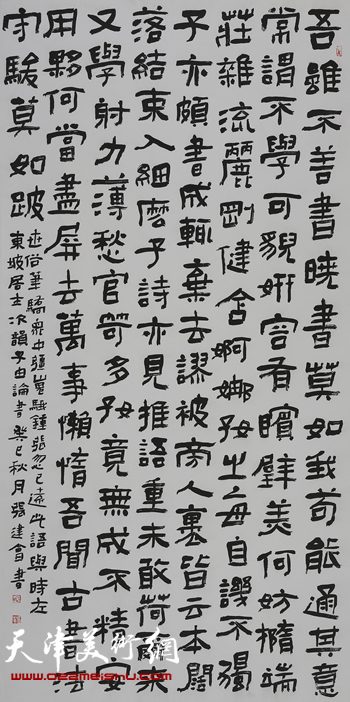 吾雖不善書曉書莫如我苟能通其意
常謂不學可貌妍容有矉璧美何妨橢端
莊雜流麗剛健含婀娜好之每自譏不獨
子亦頗書成輒棄去謬被旁人裹皆云本闊
落結束入細麼子詩亦見推語重未敢荷邇來
又學射力薄愁官笴多好竟無成不精安
用夥何當盡屏去萬事懶惰吾聞古書法
守駿莫如跛
世俗筆驕眾中強嵬騀鍾張忽已遠此語與時左
東坡居士次韻子由論書癸巳秋月張建會書
天津美術網
www.022meishu.com